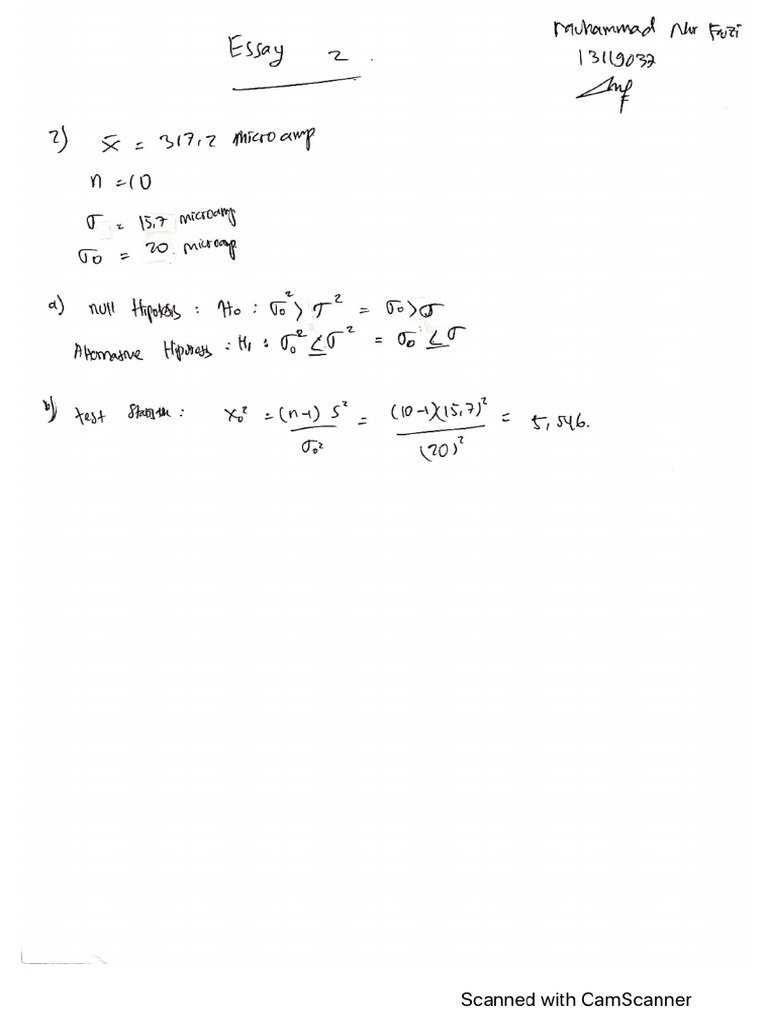 Essay 2.
Muhammad Nur Fauzi
13119037
2) x̄ = 317,2 microamp
n = 10
σ = 15,7 microamp
σ₀ = 20 microamp
a) Null Hipotesis : H₀ : σ₀² > σ² = σ₀ > σ
Alternative Hipotesis : H₁ : σ₀² ≤ σ² = σ₀ ≤ σ
b) test Statistik : X₀² = (n-1) S² / σ₀² = (10-1)(15,7)² / (20)² = 5,546.
Scanned with CamScanner